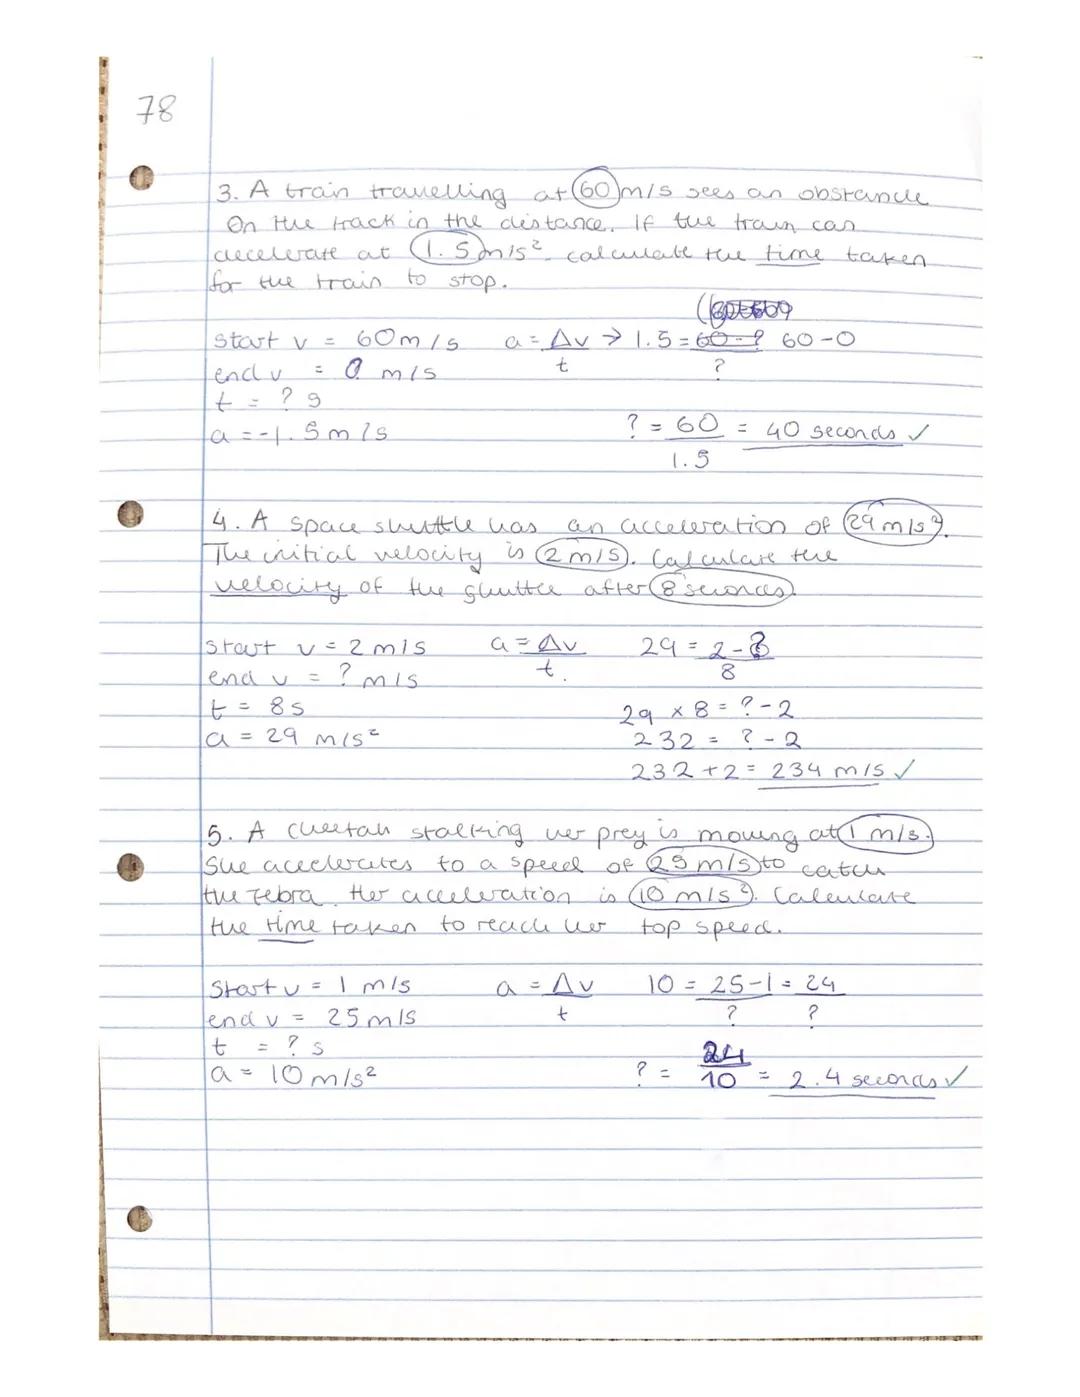 78
3. A train travelling at 60 m/s sees an obstancle
On the track in the distance. If the train can
decelerate at 1.5 m/s². calculate the time taken
for the train to stop.
start v = 60 m/s a = Δv → 1.5 = 60-? 60-0
end v = 0 m/s t ?
t = ? s
a = -1.5 m/s ? = 60 = 40 seconds ✓
1.5
4. A space shuttle has an acceleration of 29 m/s².
The initial velocity is 2 m/s. Calculate the
velocity of the shuttle after 8 seconds.
start v = 2 m/s a = Δv 29 = 2-?
end v = ? m/s t. 8
t = 8s 29 × 8 = ? - 2
a = 29 m/s² 232 = ? - 2
232 + 2 = 234 m/s ✓
5. A cheetah stalking her prey is moving at 1 m/s.
She accelerates to a speed of 25 m/s to catch
the zebra. Her acceleration is 10 m/s². Calculate
the time taken to reach her top speed.
Start v = 1 m/s a = Δv 10 = 25-1 = 24
end v = 25 m/s t ? ?
t = ? s 24
a = 10 m/s² ? = 10 = 2.4 seconds ✓